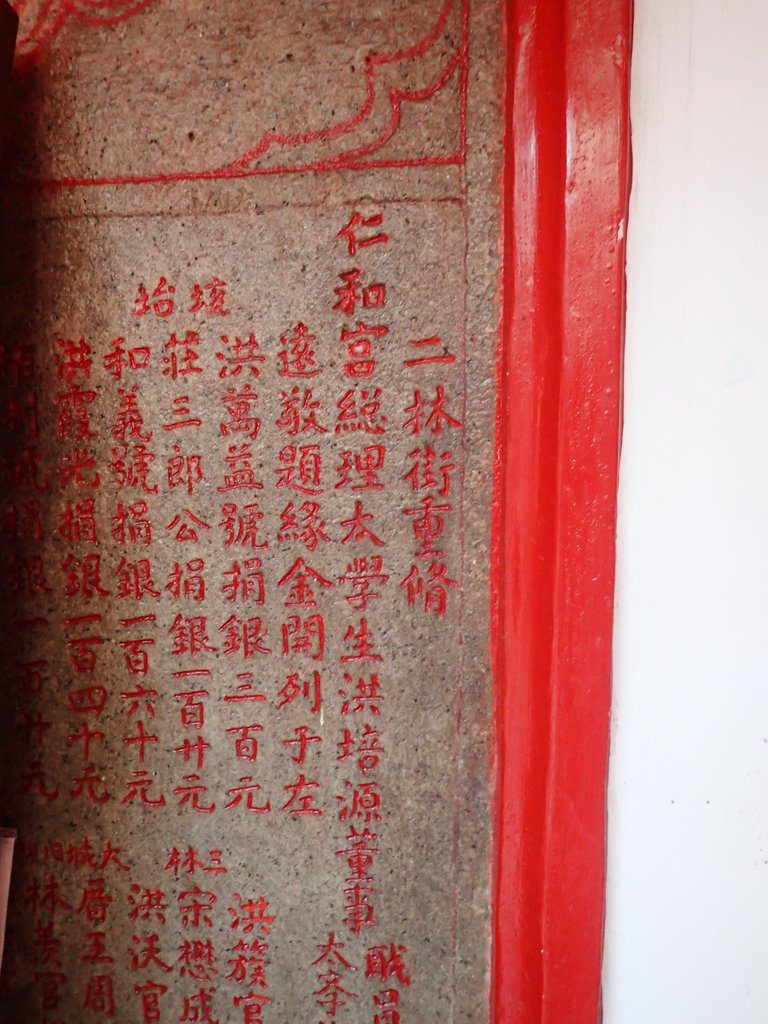 二林街重脩
仁和宮総理太學生洪培源董事
職員
太李
遠敬題緣金開列于左
洪萬益號捐銀三百元
洪簇官
莊三郎公捐銀一百廿元
三林
宋懋成
和義號捐銀一百六十元
洪沃官
洪霞光捐銀一百四十元
大城
厝王周
號捐銀一百廿元
林養官